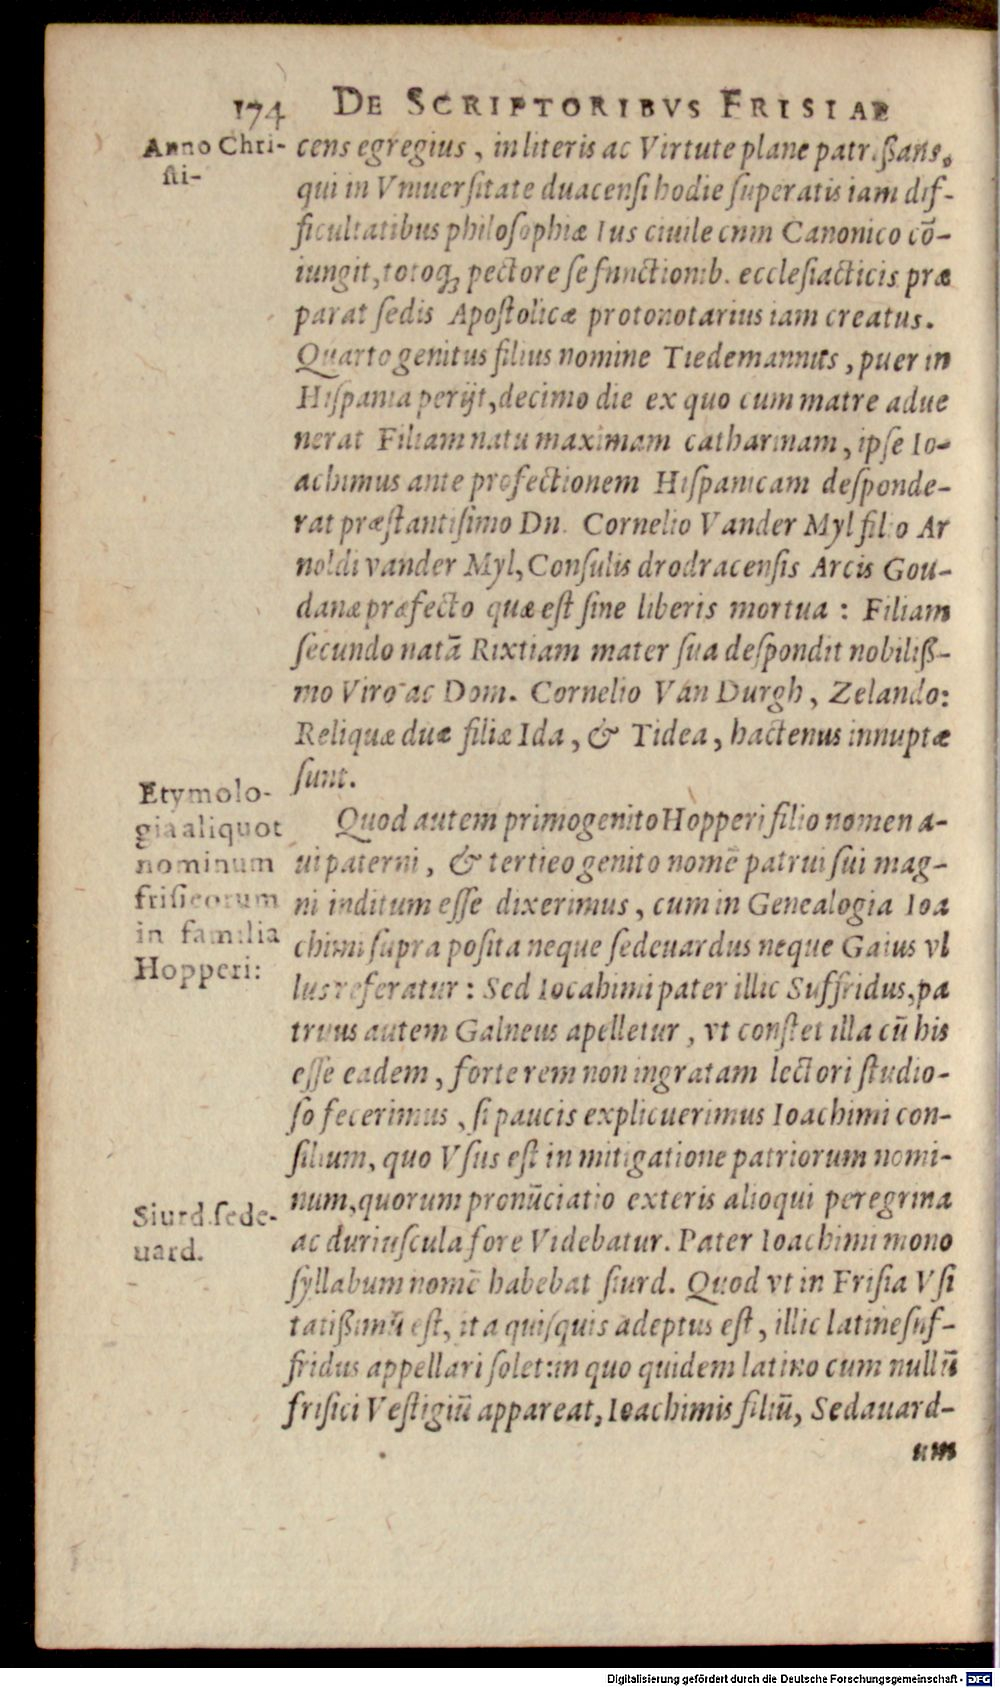 174 DE SCRIPTORIBVS FRISIAE
Anno Chri-
sti-
cens egregius, in literis ac Virtute plane patrißans,
qui in Vniuersitate duacensi hodie superatis iam dif-
ficultatibus philosophiæ Ius ciuile cnm Canonico cō-
iungit, totoq; pectore se functionib. ecclesiacticis præ
parat sedis Apostolicæ protonotarius iam creatus.
Quarto genitus filius nomine Tiedemannus, puer in
Hispania perijt, decimo die ex quo cum matre adue
nerat Filiam natu maximam catharinam, ipse Io-
achimus ante profectionem Hispanicam desponde-
rat præstantisimo Dn. Cornelio Vander Myl filio Ar
noldi vander Myl, Consulis drodracensis Arcis Gou-
danæ præfecto quæ est sine liberis mortua : Filiam
secundo natā Rixtiam mater sua despondit nobiliß-
mo Viro ac Dom. Cornelio Van Durgh, Zelando:
Reliquæ duæ filiæ Ida, & Tidea, hactenus innuptæ
sunt.
Etymolo-
gia aliquot
nominum
frisicorum
in familia
Hopperi:
Quod autem primogenito Hopperi filio nomen a-
ui paterni, & tertieo genito nomē patrui sui mag-
ni inditum esse dixerimus, cum in Genealogia Ioa
chimi supra posita neque sedeuardus neque Gaius vl
lus referatur : Sed Iocahimi pater illic Suffridus, pa
truus autem Galneus apelletur, vt constet illa cū his
esse eadem, forte rem non ingratam lectori studio-
so fecerimus, si paucis explicuerimus Ioachimi con-
silium, quo Vsus est in mitigatione patriorum nomi-
num, quorum pronūciatio exteris alioqui peregrina
ac duriuscula fore Videbatur. Pater Ioachimi mono
Siurd. sede-
uard.
syllabum nomē habebat siurd. Quod vt in Frisia Vsi
tatißimū est, ita quisquis adeptus est, illic latine suf-
fridus appellari solet: in quo quidem latino cum nullū
frisici Vestigiū appareat, Ioachimis filiū, Sedauard-
um
Digitalisierung gefördert durch die Deutsche Forschungsgemeinschaft - DFG